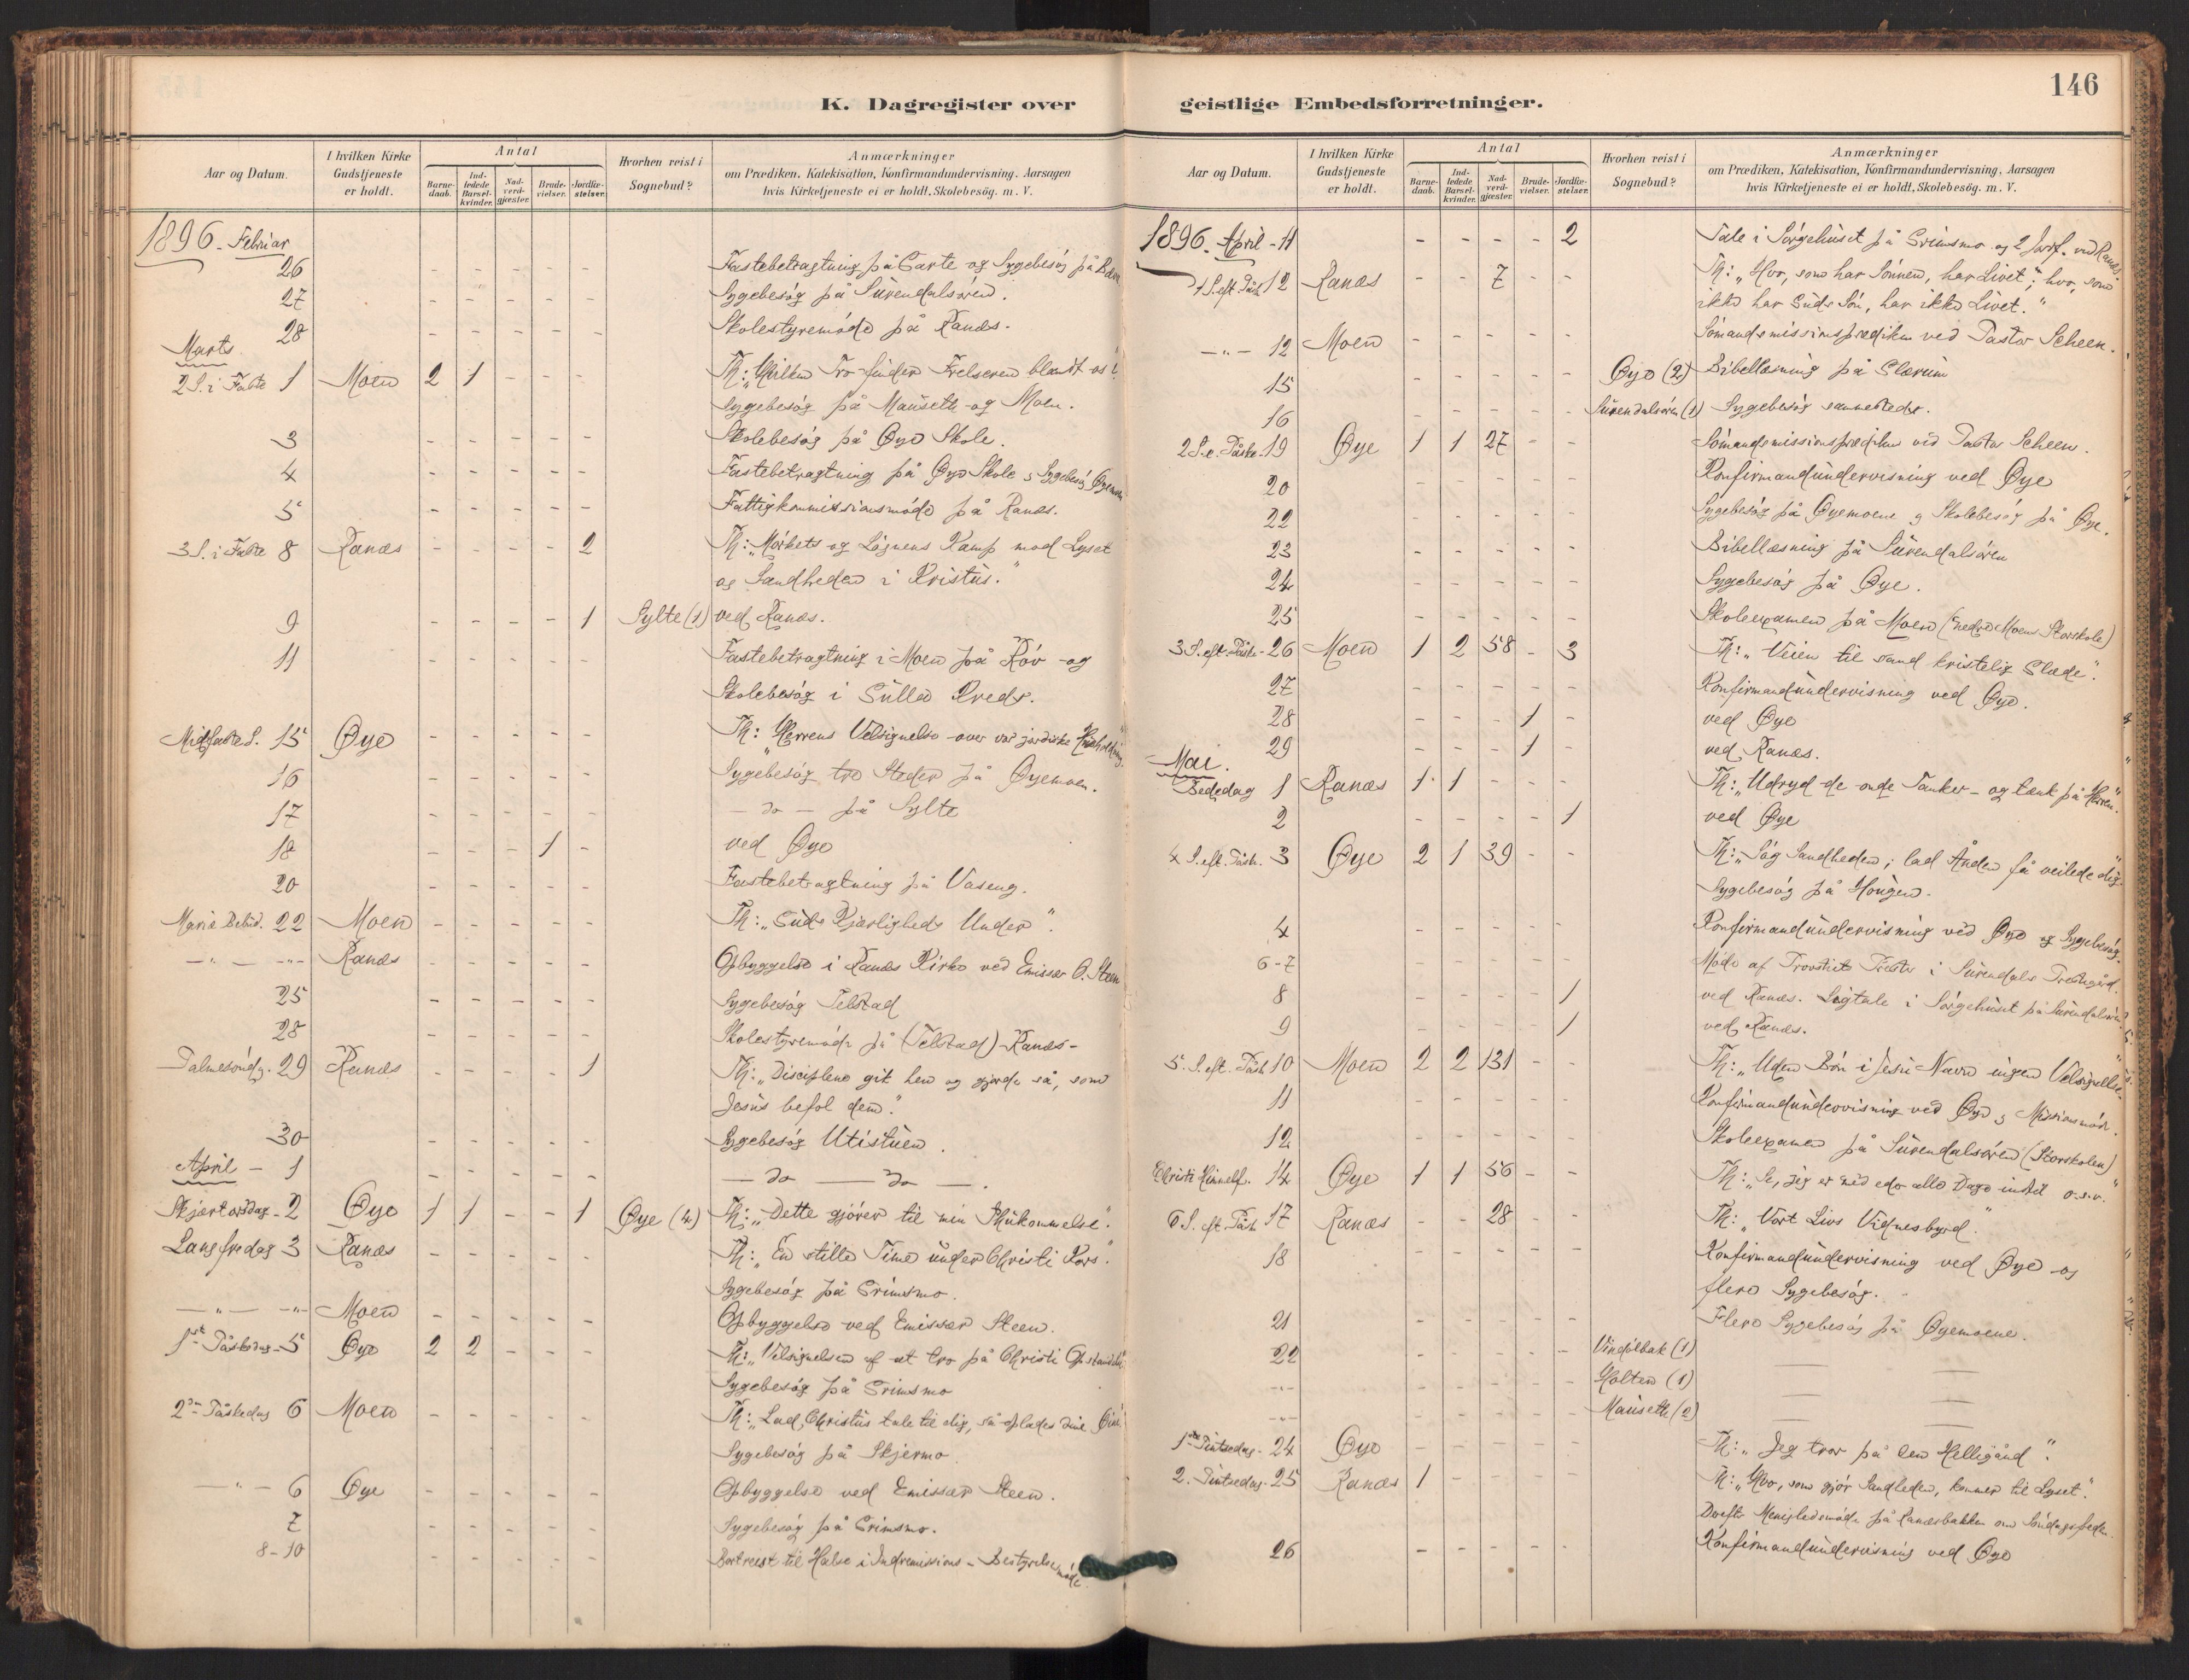 146
K. Dagregister over geistlige Embedsforretninger.
Aar og Datum. I hvilken Kirke Gudstjeneste er holdt. Antal Barnedaab. Indledede Barselkvinder. Nadverdgjæster. Brudevielser. Jordfæstelser. Hvorhen reist i Sognebud? Anmærkninger om Prædiken, Katekisation, Konfirmandundervisning, Aarsagen hvis Kirketjeneste ei er holdt, Skolebesög. m. V.
1896. Februar
26 - - - - - Fastebetragtning på Garte og Sygebesøg på
27 - - - - - Sygebesøg på Surendalsøren.
28 - - - - - Skolestyremøde på Ranæs.
Marts
2 S. i Faste 1 Moen 2 1 - - - Th: "Hvilken Tro finder Frelseren blandt os?
Sygebesøg på Mauseth og Moen.
3 - - - - - Skolebesøg på Øye Skole.
4 - - - - - Fastebetragtning på Øye Skole & Sygebesøg
5 - - - - - Fattigkommissionsmøde på Ranæs.
3 S. i Faste 8 Ranæs - - - - 2 Th: "Mørkets og Løgnens Kamp mod Lyset
og Sandheden i Kristus."
9 - - - - 1 Sylte (1) ved Ranæs.
11 - - - - - Fastebetragtning i Moen på Røv og
Skolebesøg i Sulla Kreds.
Midfaste S. 15 Øye - - - - - Th: "Herrens Velsignelse over vor jordiske Husholdning."
16 - - - - - Sygebesøg tre Steder på Øyemoen.
17 - - - - - — do — på Sylte
18 - - - 1 - ved Øye
20 - - - - - Fastebetragtning på Vaseng.
Mariæ Bebud. 22 Moen - - - - - Th: "Guds Kjærligheds Under".
— " — — " — Ranæs Opbyggelse i Ranæs Kirke ved Emissær O. Steen
25 - - - - - Sygebesøg Telstad
28 - - - - - Skolestyremøde på (Telstad) Ranæs -
Palmesøndg. 29 Ranæs - - - - 1 Th: "Disciplene gik hen og gjorde så, som
Jesus befol dem."
30 - - - - - Sygebesøg Utistuen.
April - 1 - - - - - — do — do —.
Skjærtorsdag - 2 Øye 1 1 - - 1 Øye (4) Th: "Dette gjører til min Ihukommelse".
Langfredag 3 Ranæs - - - - - Th: "En stille Time under Christi Kors".
Sygebesøg på Grimsmo.
— " — — " — Moen - - - - - Opbyggelse ved Emissær Steen.
1st Påskedag - 5 Øye 2 2 - - - Th: "Velsignelsen af at tro på Christi
Sygebesøg på Grimsmo
2den Påskedag 6 Moen - - - - - Th: "Lad Christus tale til dig, så oplades dine
Sygebesøg på Skjermo
— " — 6 Øye - - - - - Opbyggelse ved Emissær Steen.
7 - - - - - Sygebesøg på Grimsmo.
8-10 - - - - - Bortreist til Halse i Indremissions-Bestyrelsemøde.
Aar og Datum. I hvilken Kirke Gudstjeneste er holdt. Antal Barnedaab. Indledede Barselkvinder. Nadverdgjæster. Brudevielser. Jordfæstelser. Hvorhen reist i Sognebud? Anmærkninger om Prædiken, Katekisation, Konfirmandundervisning, Aarsagen hvis Kirketjeneste ei er holdt, Skolebesög. m. V.
1896. April - 11 - - - - 2 Tale i Sørgehuset på Grimsmo og 2 Jordf. ved Ranæs.
1 S. eft. Påsk. 12 Ranæs - - 7 - - Th: "Hvo, som har Sønnen, har Livet; hvo, som
ikke har Guds Søn, har ikke Livet."
— " — 12 Moen - - - - - Sømandsmissionsprædiken ved Pastor Scheen.
15 - - - - - Øye (2) Bibellæsning på Glærum
16 - - - - - Surendalsøren (1) Sygebesøg sammesteds.
2 S. e. Påske - 19 Øye 1 1 27 - - Sømandsmissionsprædiken ved Pastor Scheen.
20 - - - - - Konfirmandundervisning ved Øye
22 - - - - - Sygebesøg på Øyemoene & Skolebesøg på Øye.
23 - - - - - Bibellæsning på Surendalsøren
24 - - - - - Sygebesøg på Øye.
25 - - - - - Skoleexamen på Moen (nedre Moens Storskole)
3 S. eft. Påske - 26 Moen 1 2 58 - 3 Th: "Veien til sand kristelig Glæde".
27 - - - - - Konfirmandundervisning ved Øye.
28 - - - 1 - ved Øye
29 - - - 1 - ved Ranæs.
Mai.
Bededag 1 Ranæs 1 1 - - - Th: "Udryd de onde Tanker - og tænk på Herren".
2 - - - - 1 ved Øye
4 S. eft. Påsk. 3 Øye 2 1 39 - - Th: "Søg Sandheden; lad Ånden få veilede dig."
Sygebesøg på Hougen.
4 - - - - - Konfirmandundervisning ved Øye og Sygebesøg.
6-7 - - - - - Møde af Provstiets Præster i Surendals Præstegård.
8 - - - - 1 ved Ranæs. Ligtale i Sørgehuset på Surendalsøren
9 - - - - 1 ved Ranæs.
5. S. eft. Påsk 10 Moen 2 2 131 - - Th: "Uden Bøn i Jesu Navn ingen Velsignelse."
11 - - - - - Konfirmandundervisning ved Øye & Missionsmøde.
12 - - - - - Skoleexamen på Surendalsøren (Storskolen)
Christi Himmelf. 14 Øye 1 1 56 - - Th: "Se, jeg er med eder alle Dage indtil o.s.v."
6 S. eft. Påsk 17 Ranæs - - 28 - - Th: "Vort Livs Vidnesbyrd."
18 - - - - - Konfirmandundervisning ved Øye og
flere Sygebesøg.
21 - - - - - Flere Sygebesøg på Øyemoene.
22 - - - - - Vindølbak (1) — —
— " — - - - - - Holten (1) — —
— " — - - - - - Mauseth (2) —
1ste Pintsedag - 24 Øye - - - - - Th: "Jeg tror på den Helligånd".
2. Pintsedag - 25 Ranæs 1 - - - - Th: "Hvo, som gjør Sandheden, kommer til Lyset".
Derefter Menighedsmøde på Ranæsbakken om
26 - - - - - Konfirmandundervisning ved Øye